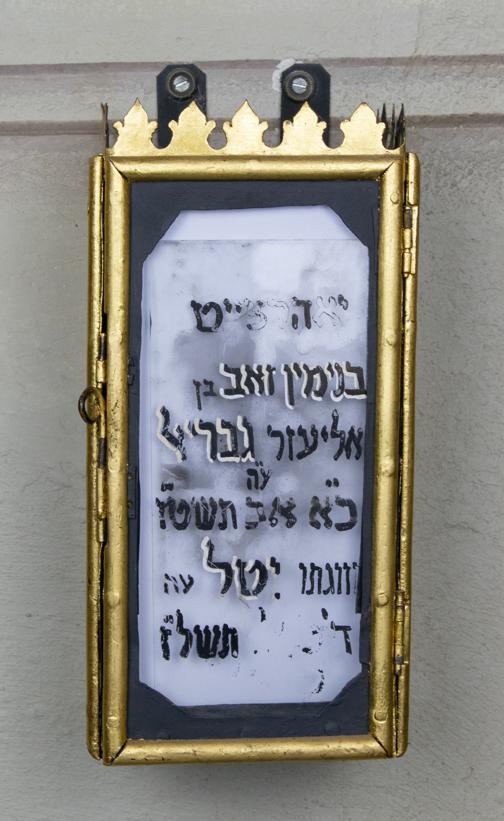 יאהרצייט
בנימין זאב בן
אליעזר גבריל
ע״ה
כ״א אב תשט״ז
וזוגתו יטל עה
ד׳ תשל״ז